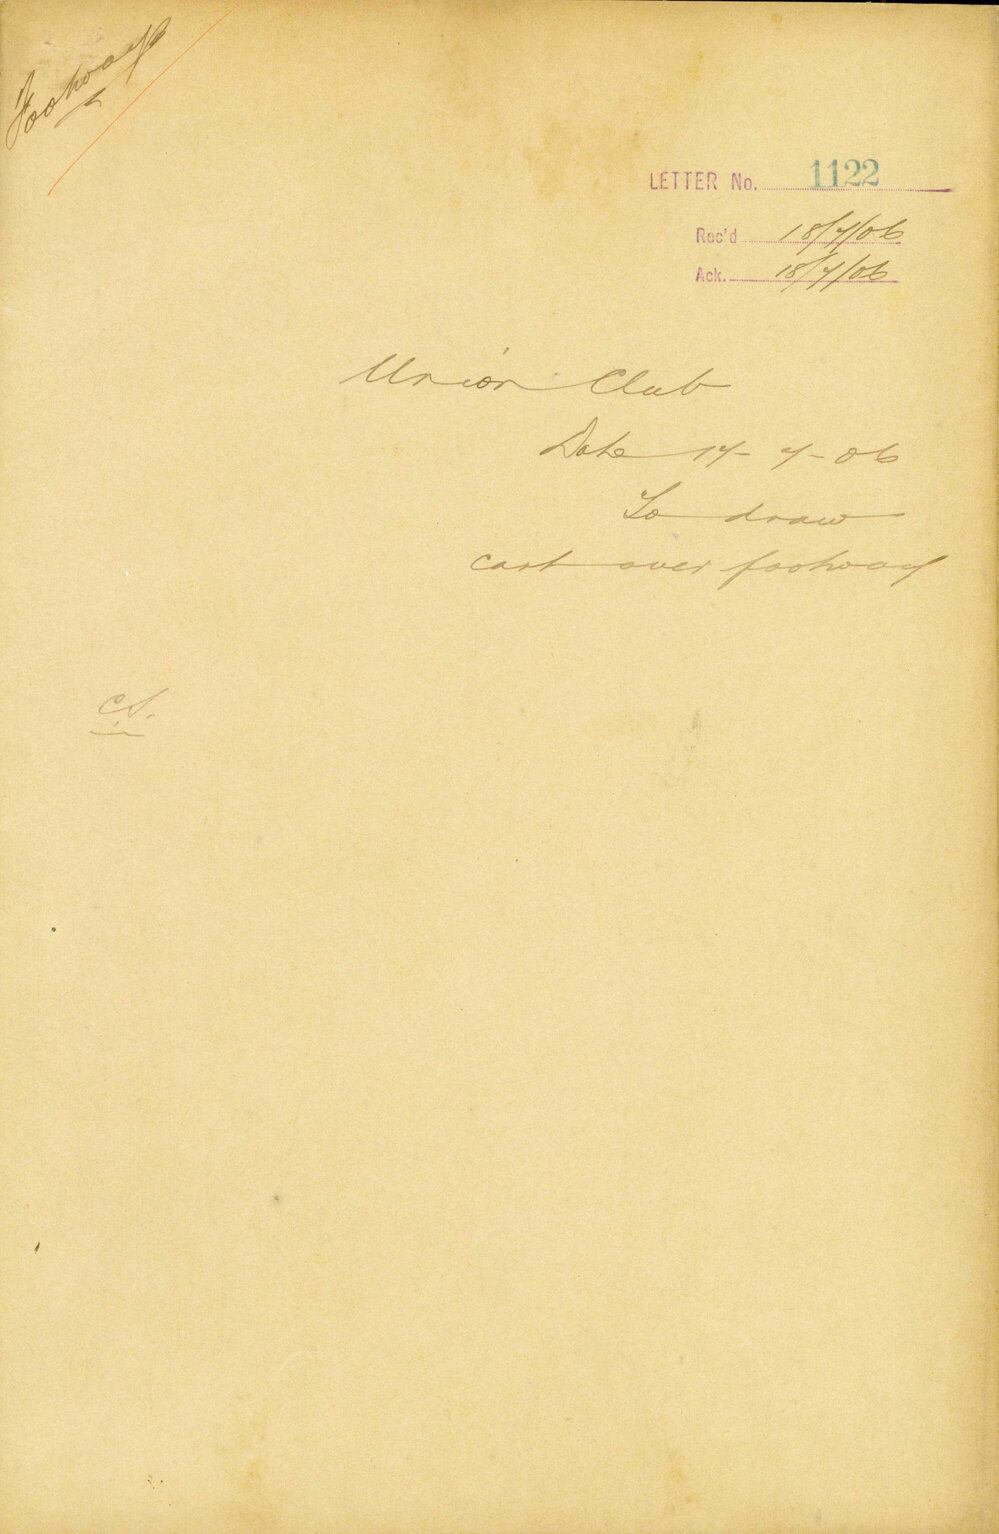 Footways
LETTER No. 1122
Rec'd 18/7/06
Ack. 18/7/06
Union Club
Date 17-7-06
To draw
cart over footway
CS.